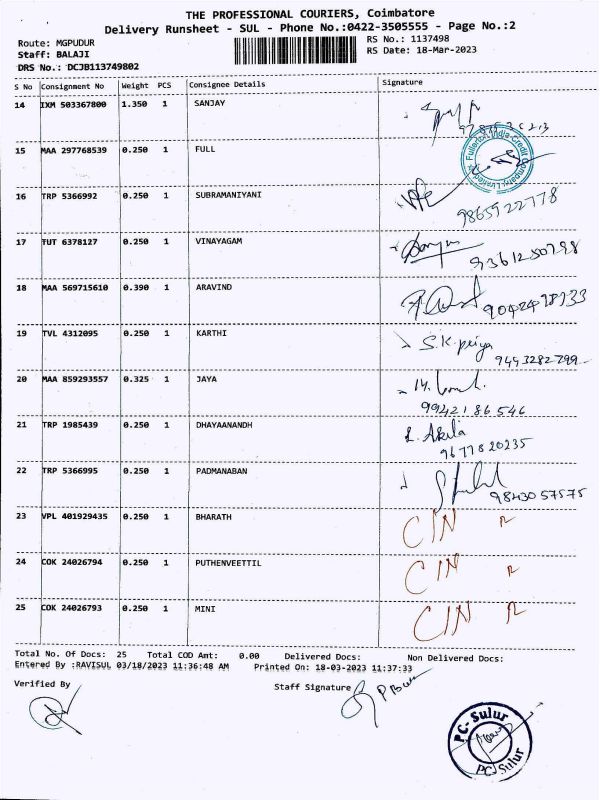 THE PROFESSIONAL COURIERS, Coimbatore
Delivery Runsheet - SUL - Phone No.:0422-3505555 - Page No.:2
Route: MGPUDUR
RS No.: 1137498
Staff: BALAJI
RS Date: 18-Mar-2023
DRS No.: DCJB113749802
S No Consignment No Weight PCS Consignee Details Signature
14 IXM 503367800 1.350 1 SANJAY
15 MAA 297768539 0.250 1 FULL
Fullerton India Credit Company Limited
16 TRP 5366992 0.250 1 SUBRAMANIYANI
9865922778
17 TUT 6378127 0.250 1 VINAYAGAM
9361250798
18 MAA 569715610 0.390 1 ARAVIND
19 TVL 4312095 0.250 1 KARTHI
S.K. priya
9493282799
20 MAA 859293557 0.325 1 JAYA
9942186546
21 TRP 1985439 0.250 1 DHAYAANANDH
L. Akila
9677820235
22 TRP 5366995 0.250 1 PADMANABAN
9843057575
23 VPL 401929435 0.250 1 BHARATH
C/N R
24 COK 24026794 0.250 1 PUTHENVEETTIL
C/N R
25 COK 24026793 0.250 1 MINI
C/N R
Total No. Of Docs: 25 Total COD Amt: 0.00 Delivered Docs: Non Delivered Docs:
Entered By :RAVISUL 03/18/2023 11:36:48 AM Printed On: 18-03-2023 11:37:33
Verified By
Staff Signature
PC- Sulur
PC- Sulur